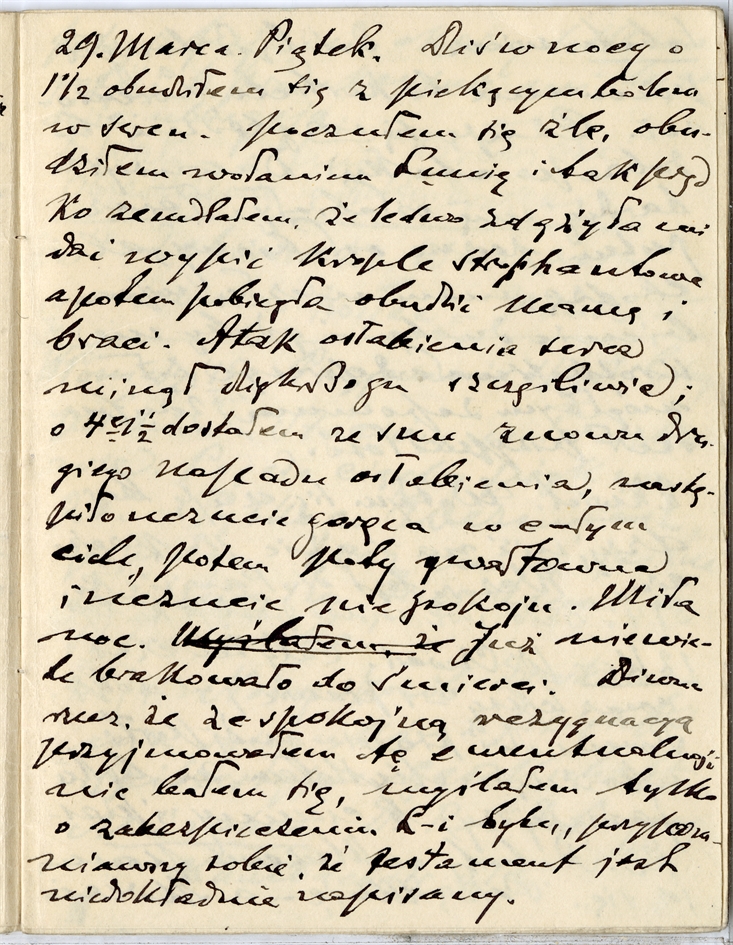 29. Marca. Piątek. Dziś w nocy o
1 1/2 obudziłem się z piekącym bólem
w sercu. poczułem się źle, obu-
dziłem wołaniem Lunię i tak pręd
ko zemdlałem, że ledwo zdążyła mi
dać wypić krople strophantowe
a potem pobiegła obudzić Mamę i
braci. Atak osłabienia serca
minął dzięki Bogu szczęśliwie;
o 4 1/2 dostałem ze snu znowu dru-
giego napadu osłabienia, nastą-
piło uczucie gorąca w całym
ciele, potem poty gwałtowne
i uczucie niepokoju. Miła
noc. Myślałem, że Już niewie-
le brakowało do śmierci. Dziwna
rzecz, że ze spokojną rezygnacją
przyjmowałem tę ewentualność
nie bałem się, myślałem tylko
o zabezpieczeniu L-i bytu, przypom-
niawszy sobie, że testament jest
niedokładnie napisany.